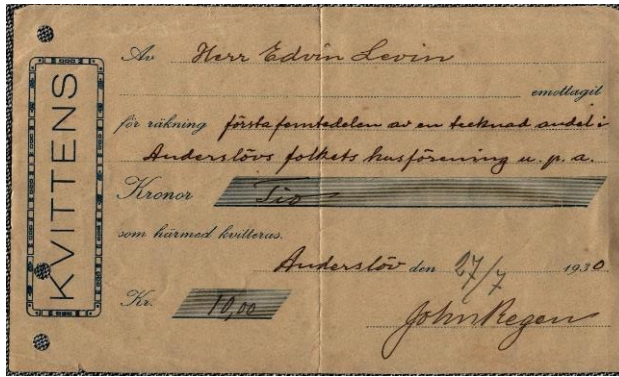 KVITTENS
Av Herr Edvin Levin
emottagit
för räkning första femtedelen av en tecknad andel i
Anderslövs folkets husförening u. p. a.
Kronor Tio
som härmed kvitteras.
Anderslöv den 27/7 1930.
Kr. 10,00
John Regen